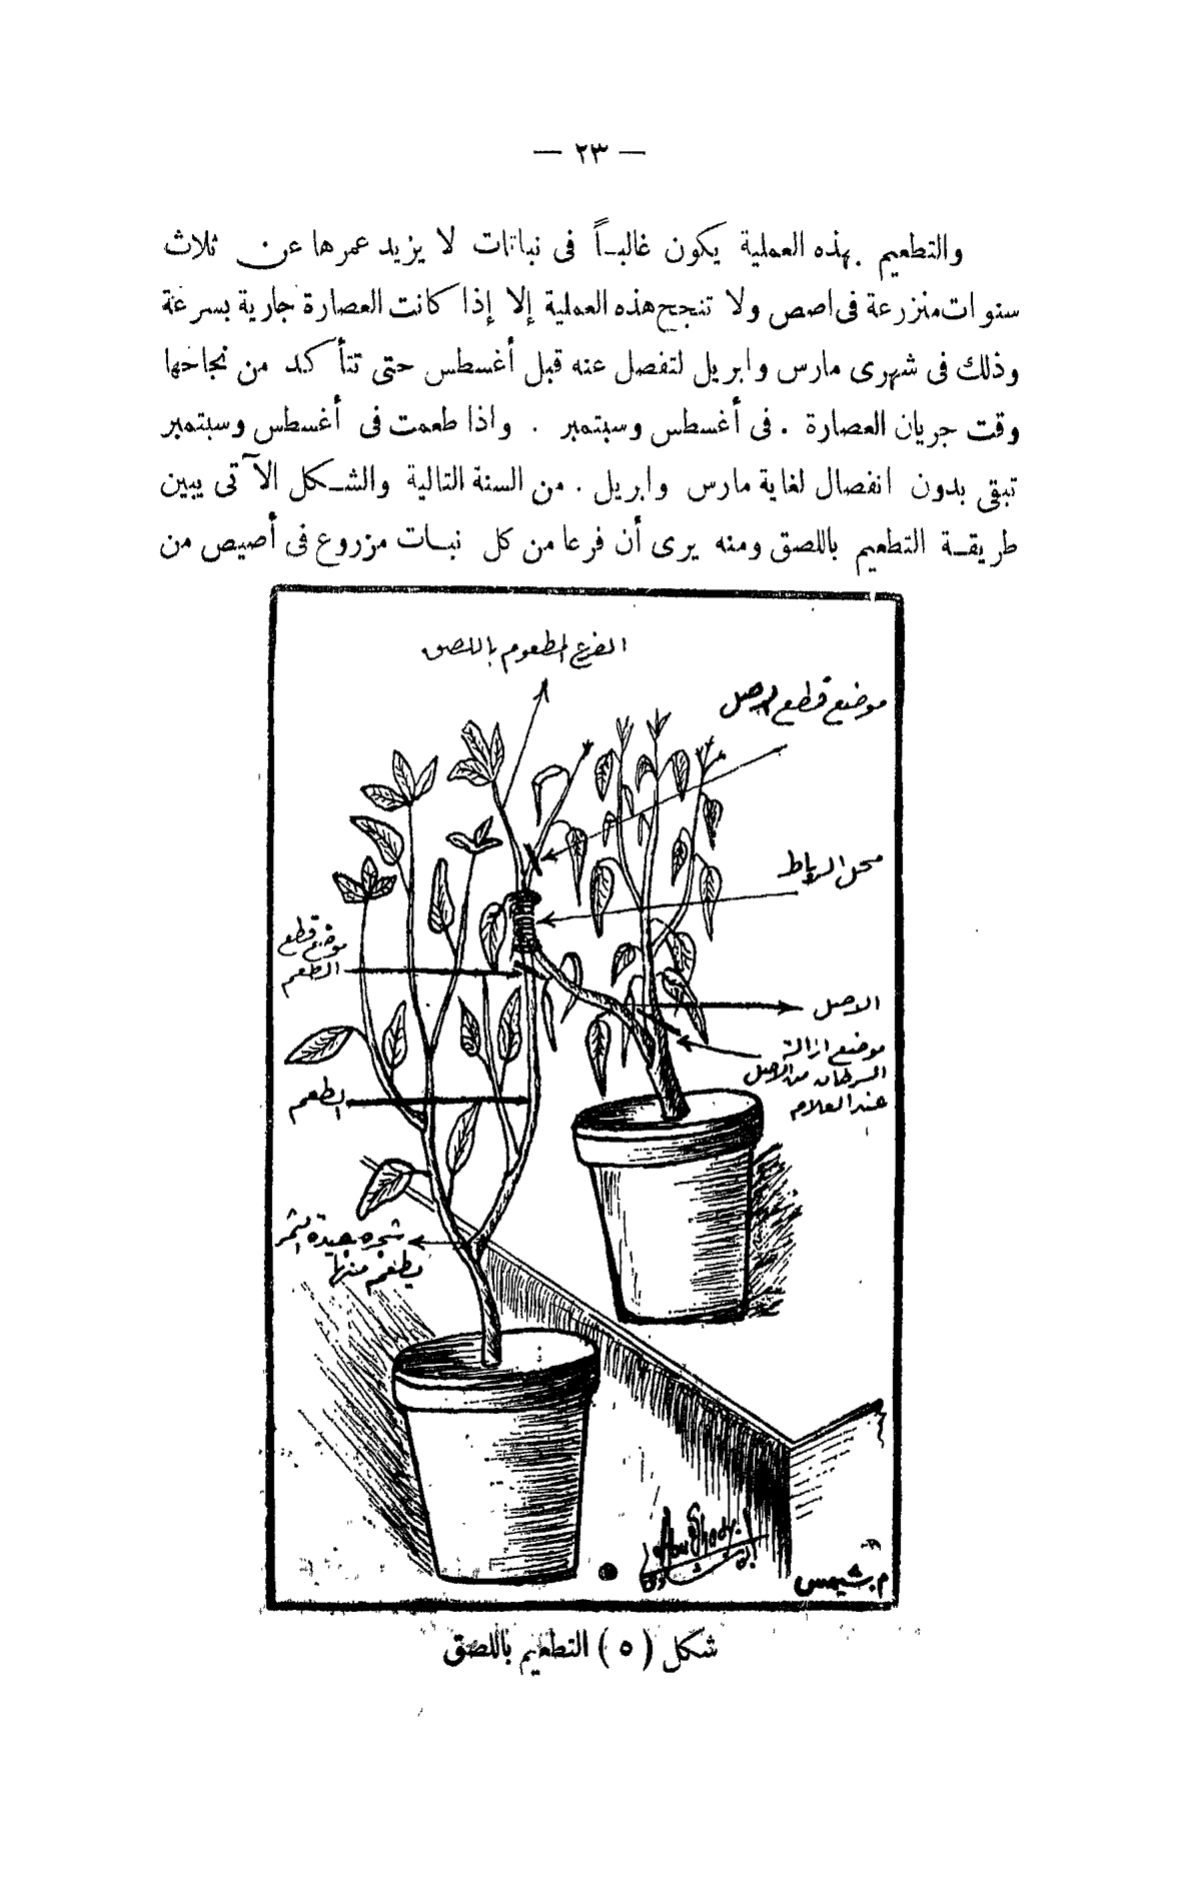 — ٢٣ —
والتطعيم بهذه العملية يكون غالبـاً فى نباتات لا يزيد عمرها عن ثلاث
سنوات منزرعة فى اصص ولا تنجح هذه العملية إلا إذا كانت العصارة جارية بسرعة
وذلك فى شهرى مارس وابريل لتفصل عنه قبل أغسطس حتى تتأكد من نجاحها
وقت جريان العصارة . فى أغسطس وسبتمبر . واذا طعمت فى أغسطس وسبتمبر
تبقى بدون انفصال لغاية مارس وابريل . من السنة التالية والشـكل الآتى يبين
طريقـة التطعيم باللصق ومنه يرى أن فرعا من كل نبـات مزروع فى أصيص من
الفرع المطعوم باللصق
موضع قطع الاصل
محل الرباط
موضع قطع
الطعم
الاصل
موضع ازالة
السرطان من الاصل
عند العلامه
الطعم
شجره جيدة الثمر
يطعم منها
Abu Shady
م. شميس
شكل ( ٥ ) التطعيم باللصق